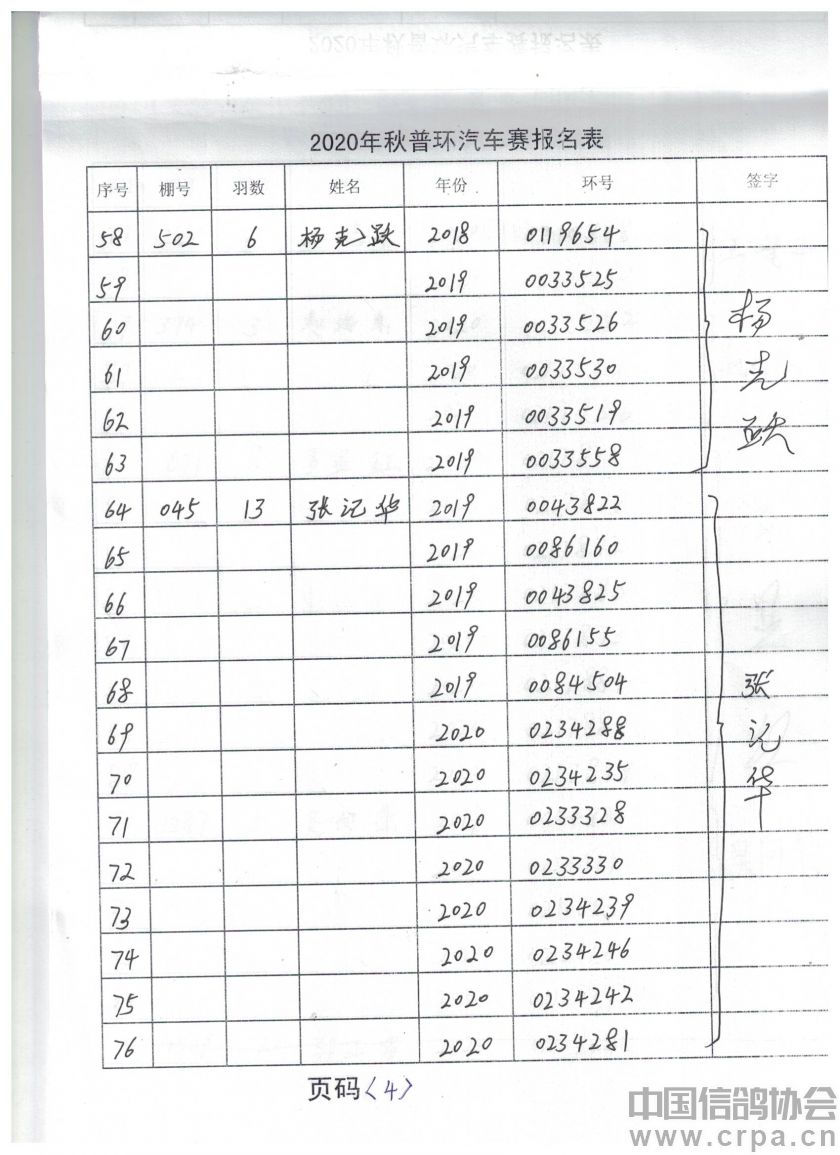 2020年秋普环汽车赛报名表
序号 棚号 羽数 姓名 年份 环号 签字
58 502 6 杨克跃 2018 0119654
59 2019 0033525
60 2019 0033526 杨
61 2019 0033530 克
62 2019 0033519 跃
63 2019 0033558
64 045 13 张记华 2019 0043822
65 2019 0086160
66 2019 0043825
67 2019 0086155
68 2019 0084504 张
69 2020 0234288 记
70 2020 0234235 华
71 2020 0233328
72 2020 0233330
73 2020 0234239
74 2020 0234246
75 2020 0234242
76 2020 0234281
页码〈4〉
中国信鸽协会
www.crpa.cn